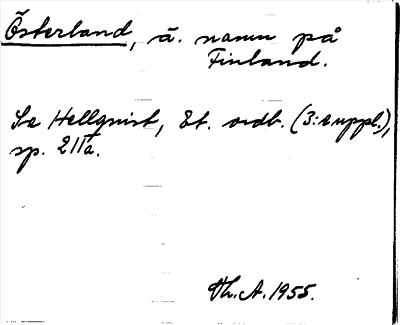 Österland, ä. namn på
Finland.
Se Hellquist, Et. ordb. (3:e uppl.),
sp. 211a.
Th. A. 1955.